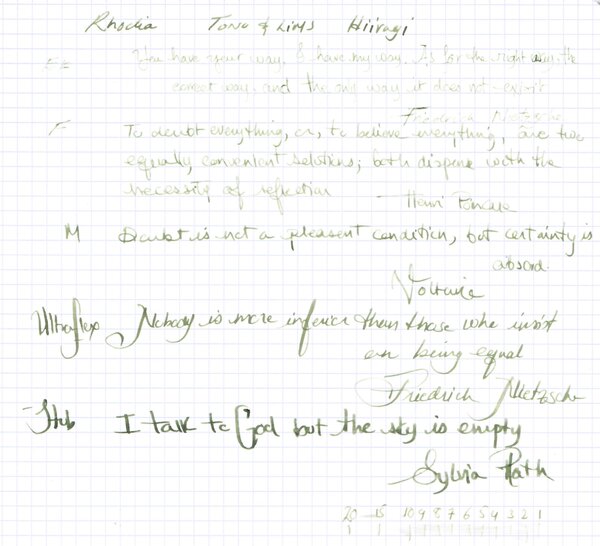 Rhodia Tono & Lims Hiiragi
EF You have your way. I have my way. As for the right way, the
correct way, and the only way, it does not exist
Friedrich Nietzsche
F To doubt everything, or, to believe everything, are two
equally convenient solutions; both dispense with the
necessity of reflection
Henri Poncare
M Doubt is not a pleasent condition, but certainty is
absurd.
Voltaire
Ultraflex Nobody is more inferior than those who insist
on being equal
Friedrich Nietzsche
Stub I talk to God but the sky is empty
Sylvia Plath
20 15 10 9 8 7 6 5 4 3 2 1